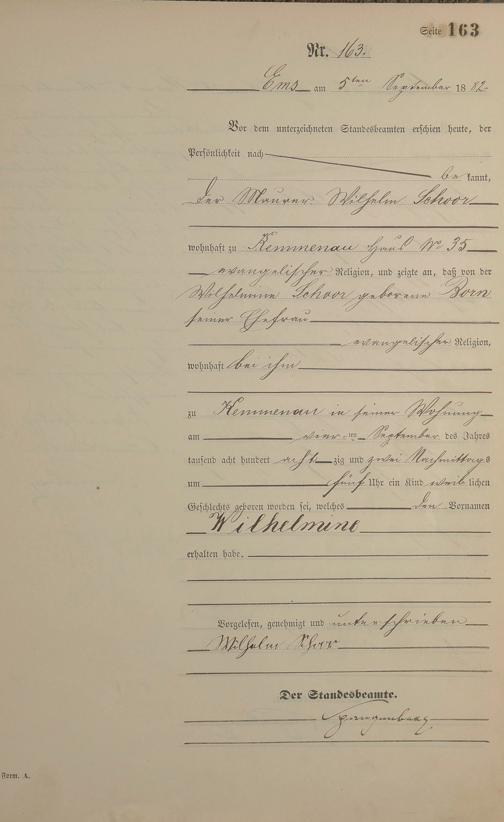 Seite 163
Nr. 163.
Ems am 5ten September 1882
Vor dem unterzeichneten Standesbeamten erschien heute, der
Persönlichkeit nach
bekannt,
der Maurer Wilhelm Schoor
wohnhaft zu Kemmenau Haus No 35
evangelischer Religion, und zeigte an, daß von der
Wilhelmine Schoor geborene Born
seiner Ehefrau
evangelischer Religion,
wohnhaft bei ihm
zu Kemmenau in seiner Wohnung
am vierten September des Jahres
tausend acht hundert achtzig und zwei Nachmittags
um fünf Uhr ein Kind weiblichen
Geschlechts geboren worden sei, welches den Vornamen
Wilhelmine
erhalten habe.
Vorgelesen, genehmigt und unterschrieben
Wilhelm
Der Standesbeamte.
Spangenberg
Form. A.